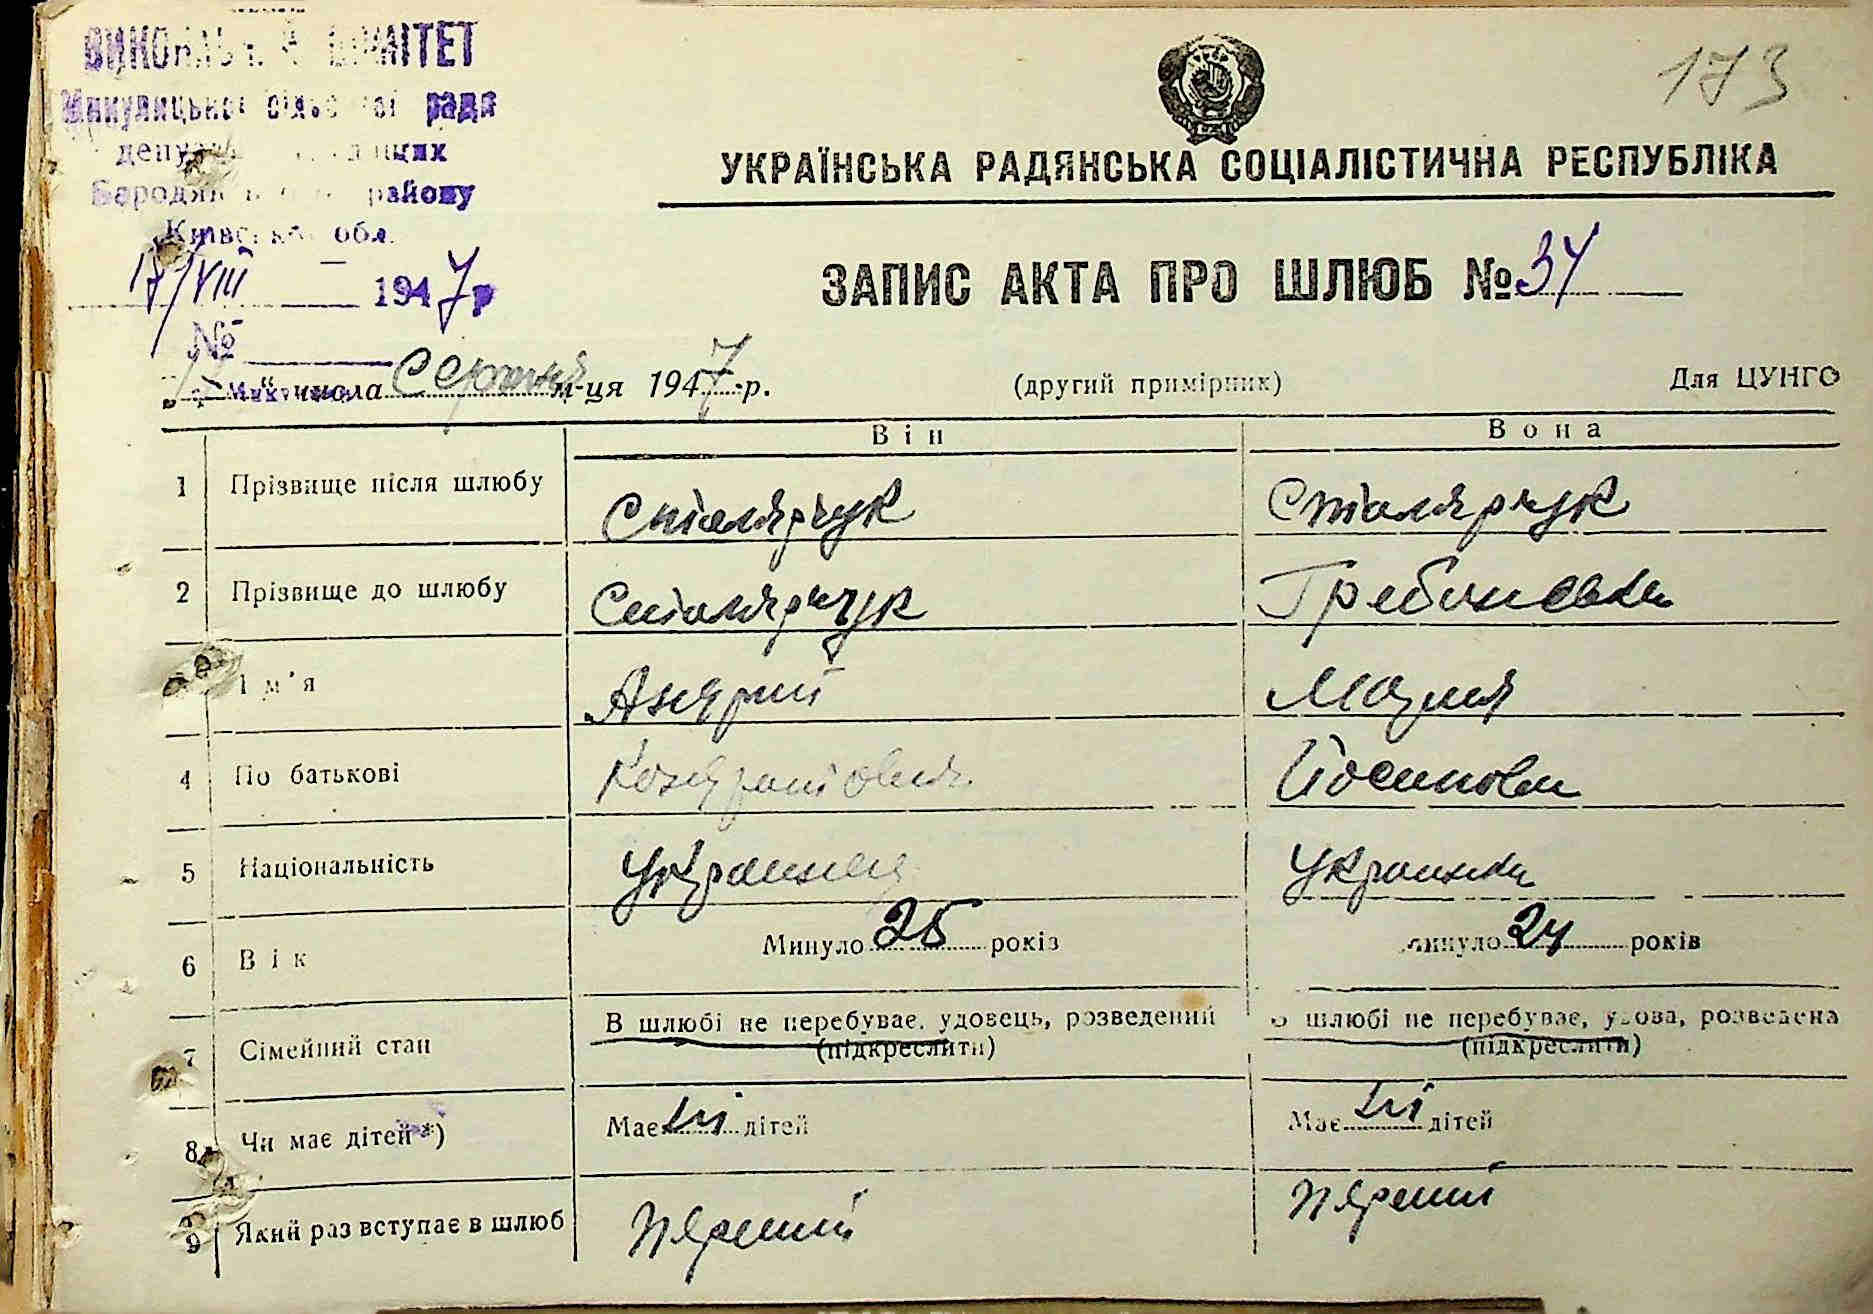 173
ВИКОНАВЧИЙ КОМІТЕТ
Микулицької сільської ради
депутатів трудящих
Бородянського району
Київської обл.
17/VIII 1947 р
№
УКРАЇНСЬКА РАДЯНСЬКА СОЦІАЛІСТИЧНА РЕСПУБЛІКА
ЗАПИС АКТА ПРО ШЛЮБ № 34
" числа Серпня м-ця 1947 р. (другий примірник) Для ЦУНГО
Він Вона
1 Прізвище після шлюбу Столярчук Столярчук
2 Прізвище до шлюбу Столярчук
Ім'я Андрий Мария
4 По батькові Кондратович Йосиповн
5 Національність Украинец Украинка
6 Вік Минуло 25 років Минуло 24 років
7 Сімейний стан В шлюбі не перебуває, удовець, розведений В шлюбі не перебуває, удова, розведена
(підкреслити) (підкреслити)
8 Чи має дітей *) Має дітей Має дітей
9 Який раз вступає в шлюб перший перший